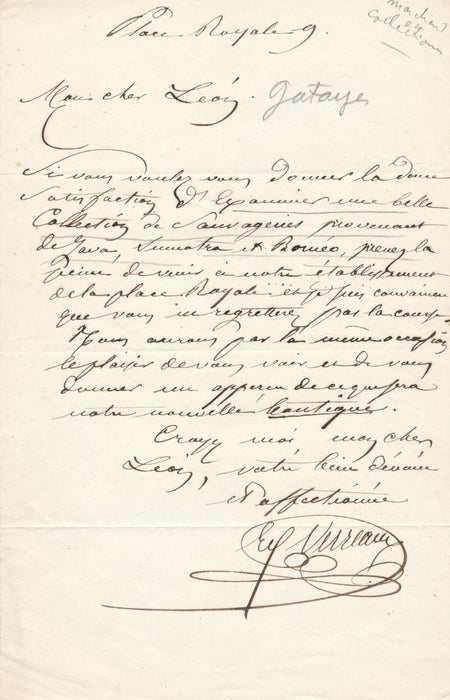 Place Royale 9.
marchand
et
Collections
Mon cher Léon. Gatayes
Si vous voulez vous donner la douce
satisfaction d'Examiner une belle
Collection de Sauvageries provenant
de Java, Sumatra et Borneo, prenez la
peine de venir à notre établissement
de la place Royale et je suis convaincu
que vous ne regretterez pas la course.
Nous aurons par la même occasion
le plaisir de vous voir et de vous
donner un apperçu de ce que sera
notre nouvelle boutique.
Croyez moi mon cher
Léon, votre bien dévoué
et affectionné
Ed Verreaux